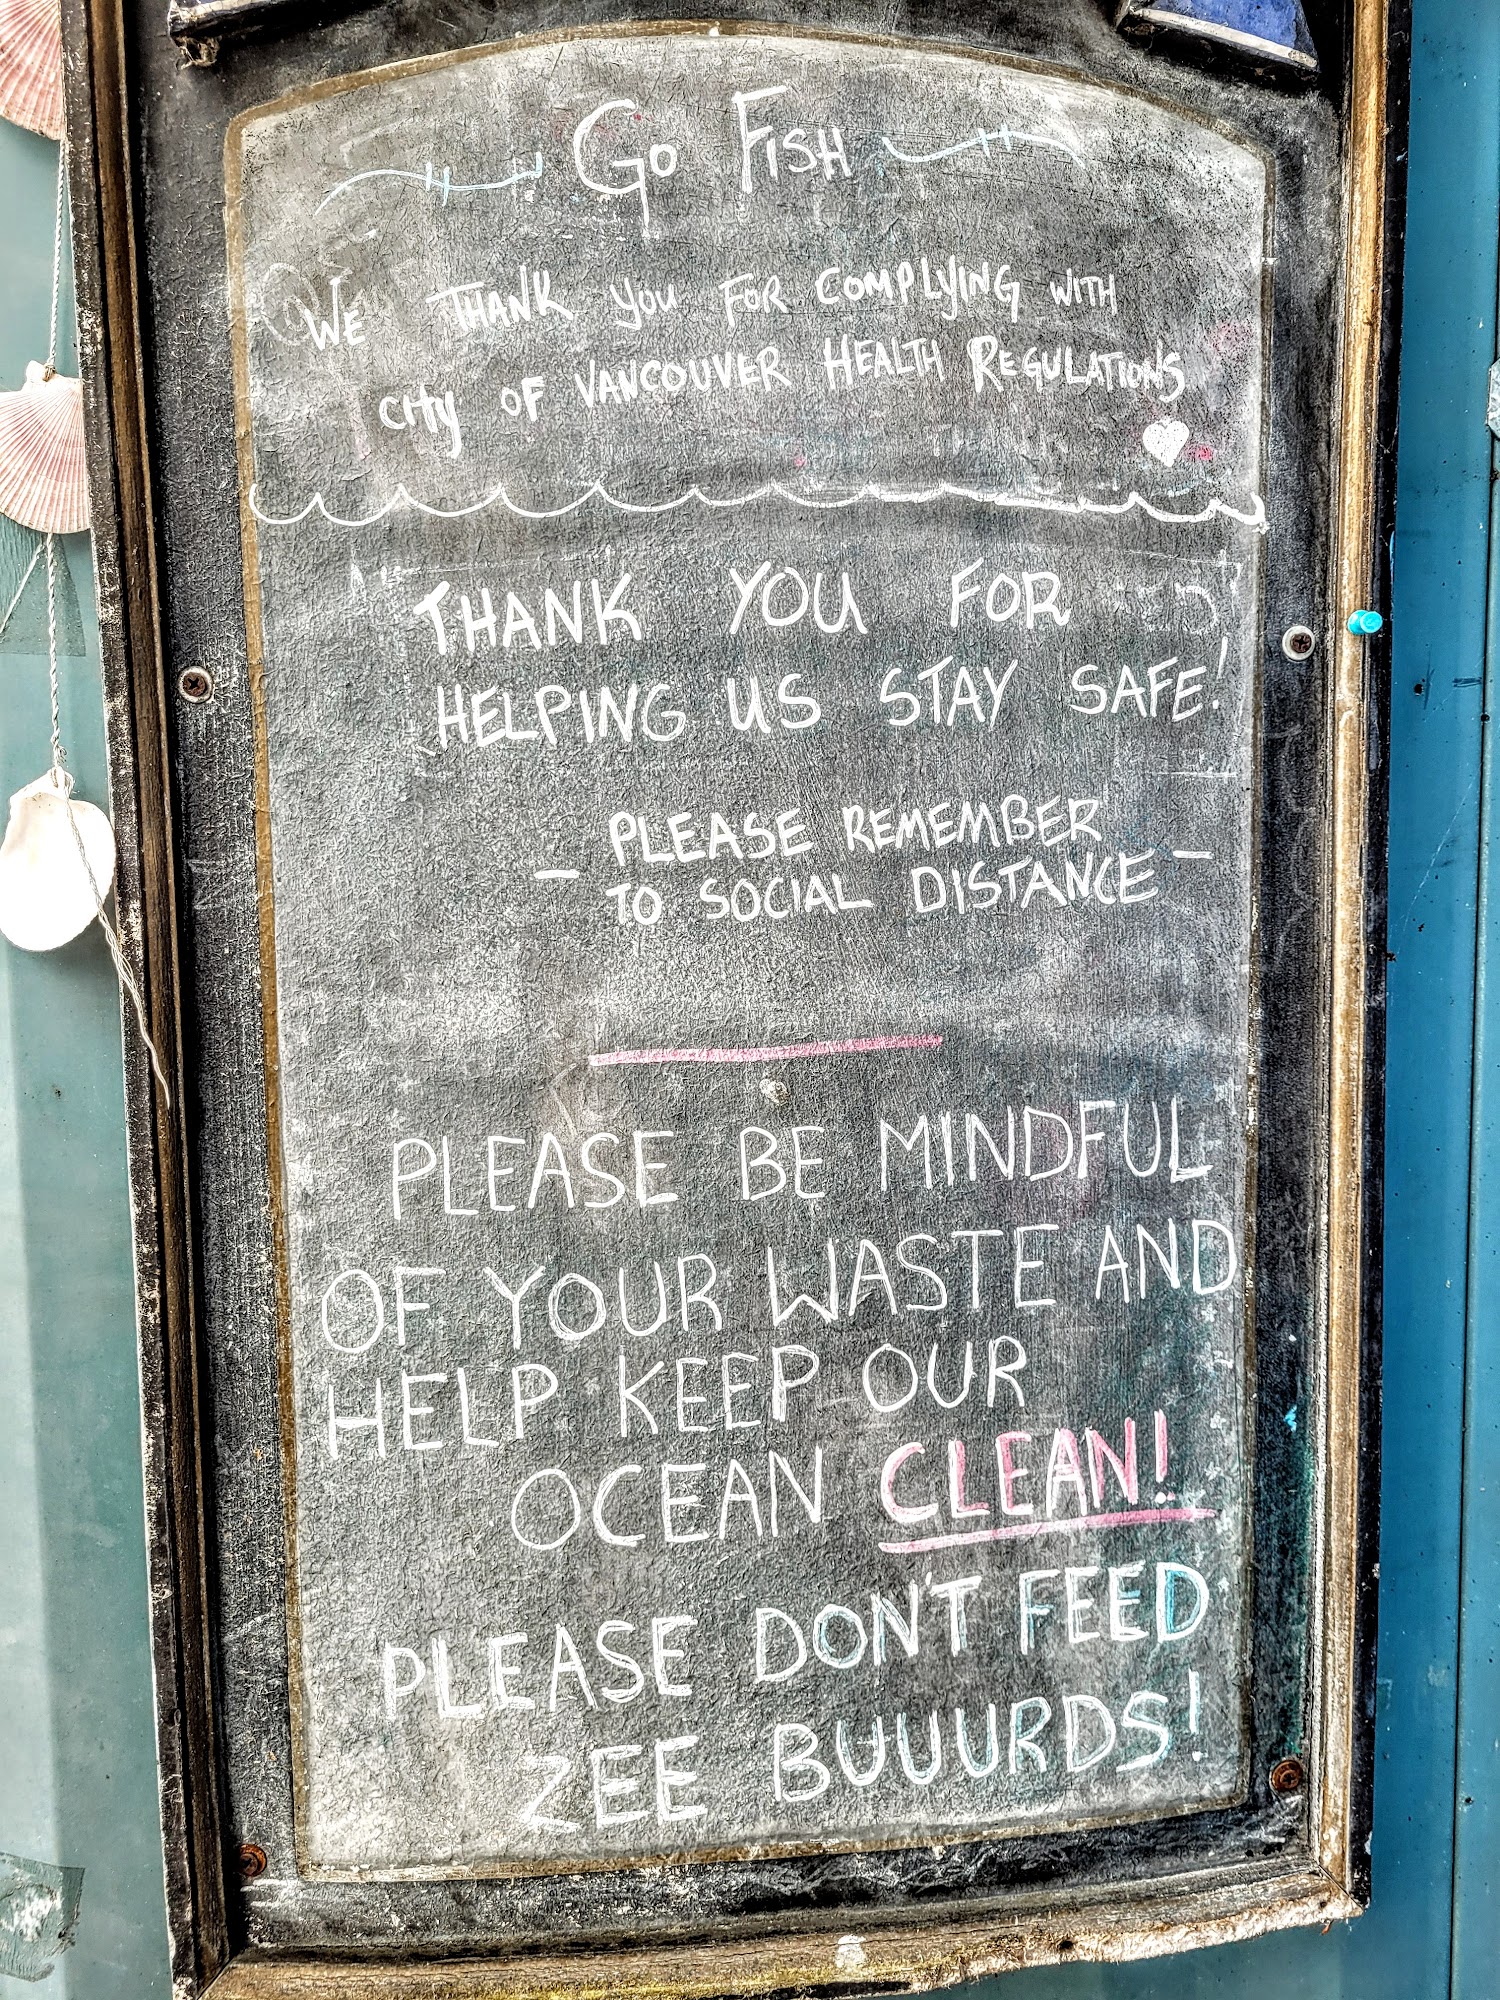 Go FISH
WE THANK YOU FOR COMPLYING WITH
CITY OF VANCOUVER HEALTH REGULATIONS
THANK YOU FOR
HELPING US STAY SAFE!
- PLEASE REMEMBER -
TO SOCIAL DISTANCE
PLEASE BE MINDFUL
OF YOUR WASTE AND
HELP KEEP OUR
OCEAN CLEAN!
PLEASE DON'T FEED
ZEE BUUURDS!